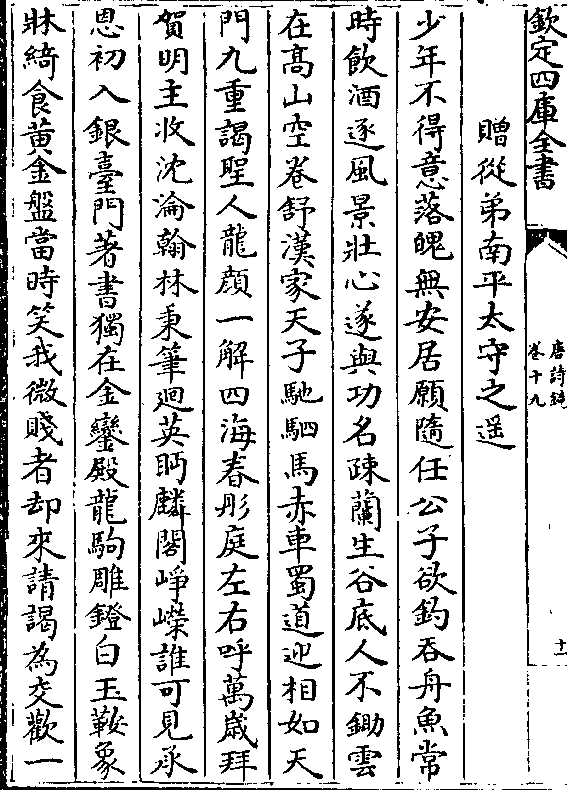 欽定四庫全書
唐詩鏡
卷十九
十一
贈從弟南平太守之遥
少年不得意落魄無安居願隨任公子欲釣吞舟魚常
時飲酒逐風景壯心遂與功名疎蘭生谷底人不鋤雲
在髙山空卷舒漢家天子馳駟馬赤車蜀道迎相如天
門九重謁聖人龍顔一解四海春彤庭左右呼萬歲拜
賀明主收沈淪翰林秉筆迴英眄麟閣崢嶸誰可見承
恩初入銀臺門著書獨在金鑾殿龍駒雕鐙白玉鞍象
牀綺食黄金盤當時笑我微賤者却來請謁為交歡一